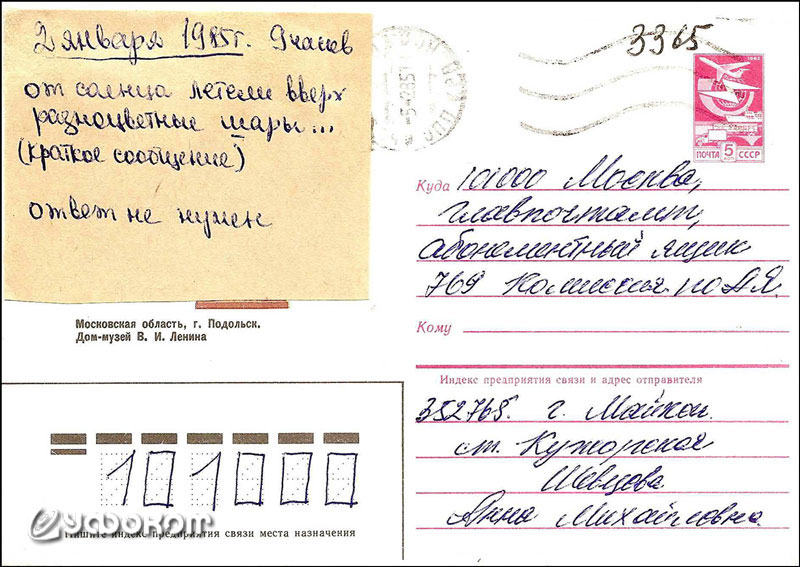 2 января 1985г. 9 часов
от солнца летели вверх
разноцветные шары...
(краткое сообщение)
ответ не нужен
3365
1982
ПОЧТА 5 СССР
Куда 101000 Москва,
Главпочтамт,
абонементный ящик
769 Комиссия по АЯ
Кому
Московская область, г. Подольск.
Дом-музей В. И. Ленина
Индекс предприятия связи и адрес отправителя
352765. г. Майкоп
ст. Кужорская
Шевцова
Анна Михайловна.
101000
Уфоком
Пишите индекс предприятия связи места назначения